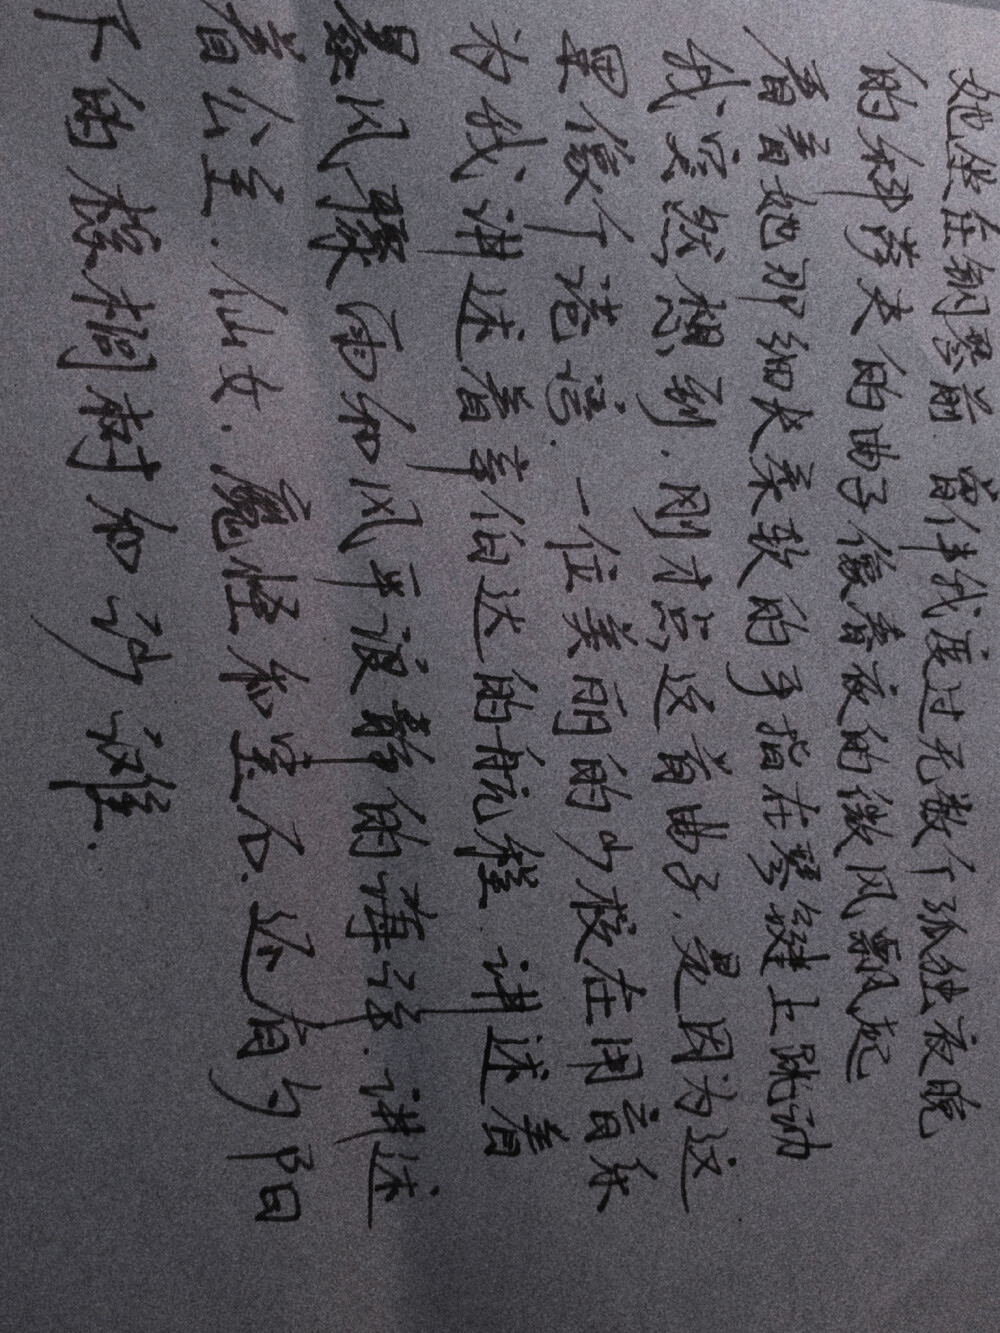 她坐在钢琴前 曾伴我度过无数个孤独夜晚
的钟涛夫的曲子像春夜的微风飘起
看着她那细长柔软的手指在琴键上跳动
我突然想到.刚才点这首曲子.是因为这
里像个港湾.一位美丽的少校在用音乐
为我讲述着辛伯达的航程 讲述着
暴风骤雨和风平浪静的海洋.讲述
着公主.仙女.魔怪和宝石.还有夕阳
下的棕榈树和沙滩.